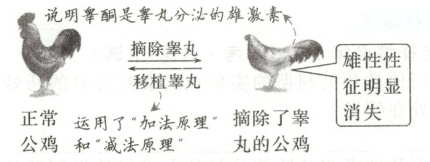 说明睾酮是睾丸分泌的雄激素
摘除睾丸
移植睾丸
雄性性
征明显
消失
正常
公鸡
运用了“加法原理”
和“减法原理”
摘除了睾
丸的公鸡